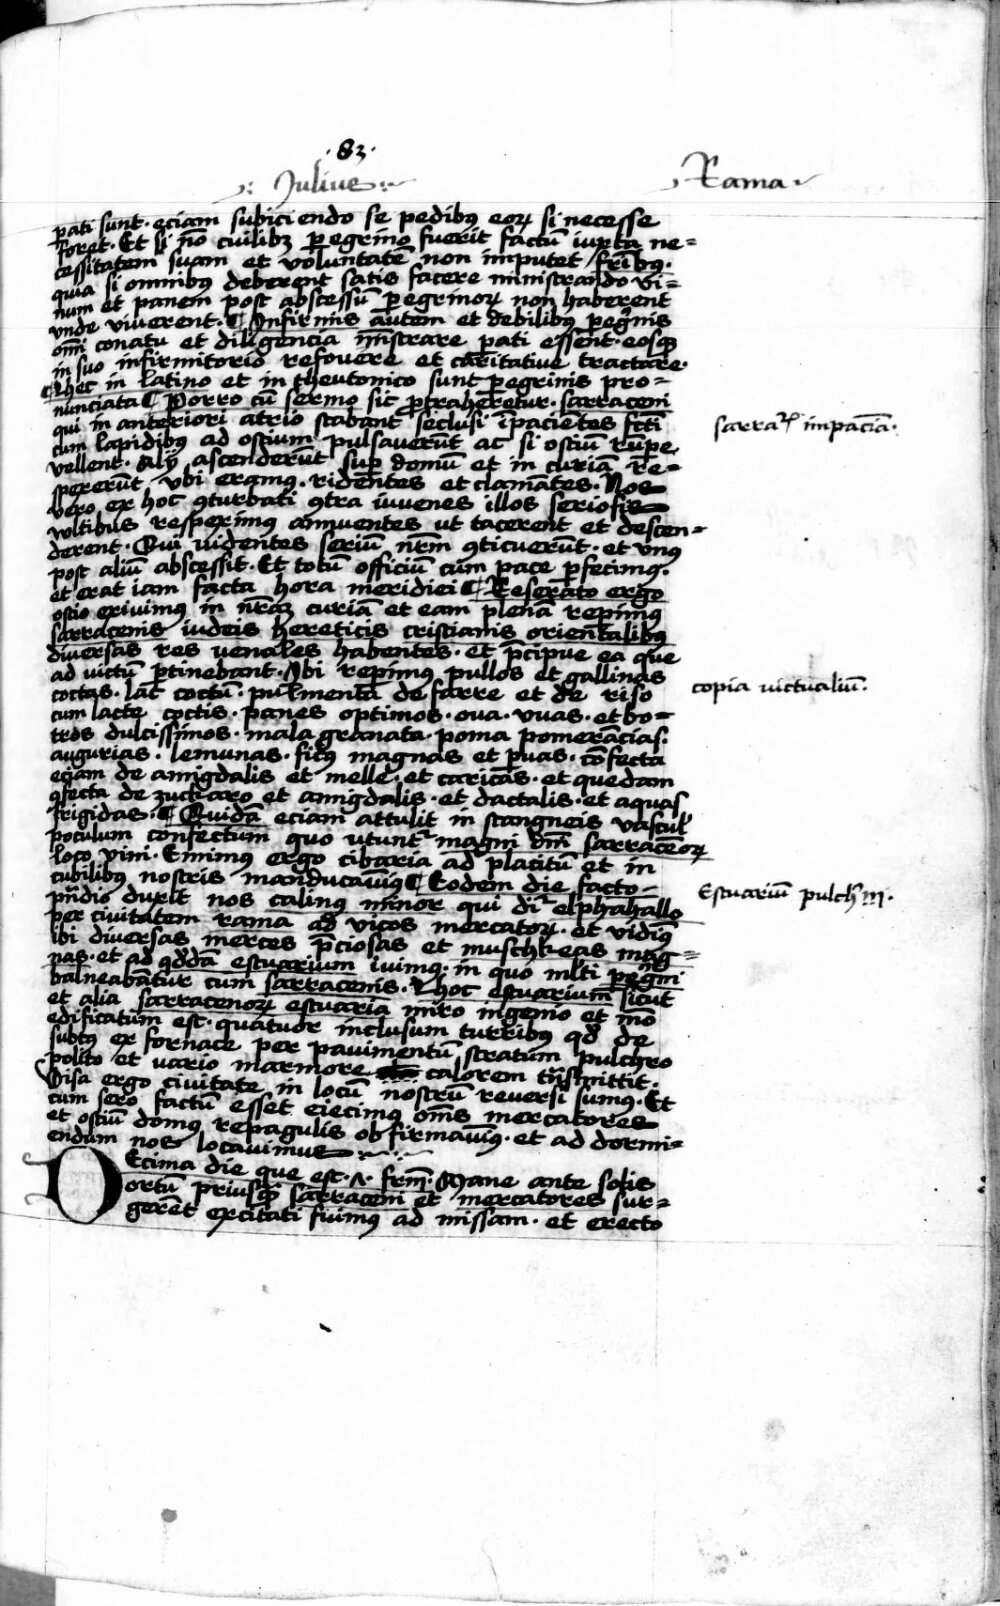 ·83·
Julius
Rama
pati sunt · eciam subiciendo se pedibus eorum si necesse
foret · Et si non cuilibet peregrino fuerit factum iuxta ne=
cessitatem suam et voluntatem non imputet fratribus ·
quia si omnibus deberent satis facere ministrando vi=
num et panem post abscessum peregrinorum non haberent
unde viverent · ¶ Infirmis autem et debilibus peregrinis
omni conatu et diligencia ministrare pati essent · eosque
in suo infirmitorio refovere et caritative tractare ·
¶ Hec in latino et in theutonico sunt peregrinis pro=
nunciata ¶ Porro cum sermo sic protraheretur · sarraceni
qui in anteriori atrio stabant seclusi impacientes facti
cum lapidibus ad ostium pulsaverunt ac si ostium rumpere
vellent · Alij ascenderunt super domum et in curiam re=
spexerunt ubi eramus · ridentes et clamantes · Nos
vero ex hoc conturbati contra iuvenes illos seriosis
voltibus respeximus annuentes ut tacerent et descen=
derent · Qui videntes serium nostrum conticuerunt · et unus
post alium abscessit · Et totum officium cum pace perfecimus ·
et erat iam facta hora meridiei ¶ Reserato ergo
ostio exivimus in nostram curiam et eam plenam reperimus
sarracenis iudeis hereticis cristianis orientalibus
diversas res venales habentes · et precipue ea que
ad victum pertinebant · Ibi reperimus pullos et gallinas
coctas · lac coctum · pulmenta de farre et de riso
cum lacte coctis · panes optimos · ova · uvas · et bo=
tros dulcissimos · mala granata · poma pomeracias ·
augurias · lemunas · ficus magnas et parvas · confecta
eciam de amigdalis et melle · et caricas · et quedam
confecta de zuckaro et amigdalis · et dactalis · et aquas
frigidas · ¶ Quidam eciam attulit in stangneis vasculis
poculum confectum quo utuntur magni domini sarracenorum
loco vini · Emimus ergo cibaria ad placitum et in
cubilibus nostris manducavimus ¶ Eodem die facto
prandio duxit nos calinus minor qui dicitur elphahallo
per civitatem rama ad vicos mercatorum · et vidimus
ibi diversas merces preciosas et muschkeas mag=
nas · et ad quoddam estuarium ivimus · in quo multi peregrini
balneabantur cum sarracenis · Hoc estuarium sicut
et alia sarracenorum estuaria miro ingenio et modo
edificatum est · quatuor inclusum turribus quod de
subtus ex fornace per pavimentum stratum pulchro
polito et vario marmore calorem transmittit ·
Visa ergo civitate in locum nostrum reversi sumus · Et
cum sero factum esset eiecimus omnes mercatores
et ostium domus repagulis obfirmavimus · et ad dormi=
endum nos locavimus
Decima die que est · fratrum · Mane ante solis
ortum priusquam sarraceni et mercatores sur=
gerent excitati fuimus ad missam · et erecto
sarracenorum impaciencia ·
copia victualium ·
Estuarium pulchrum ·